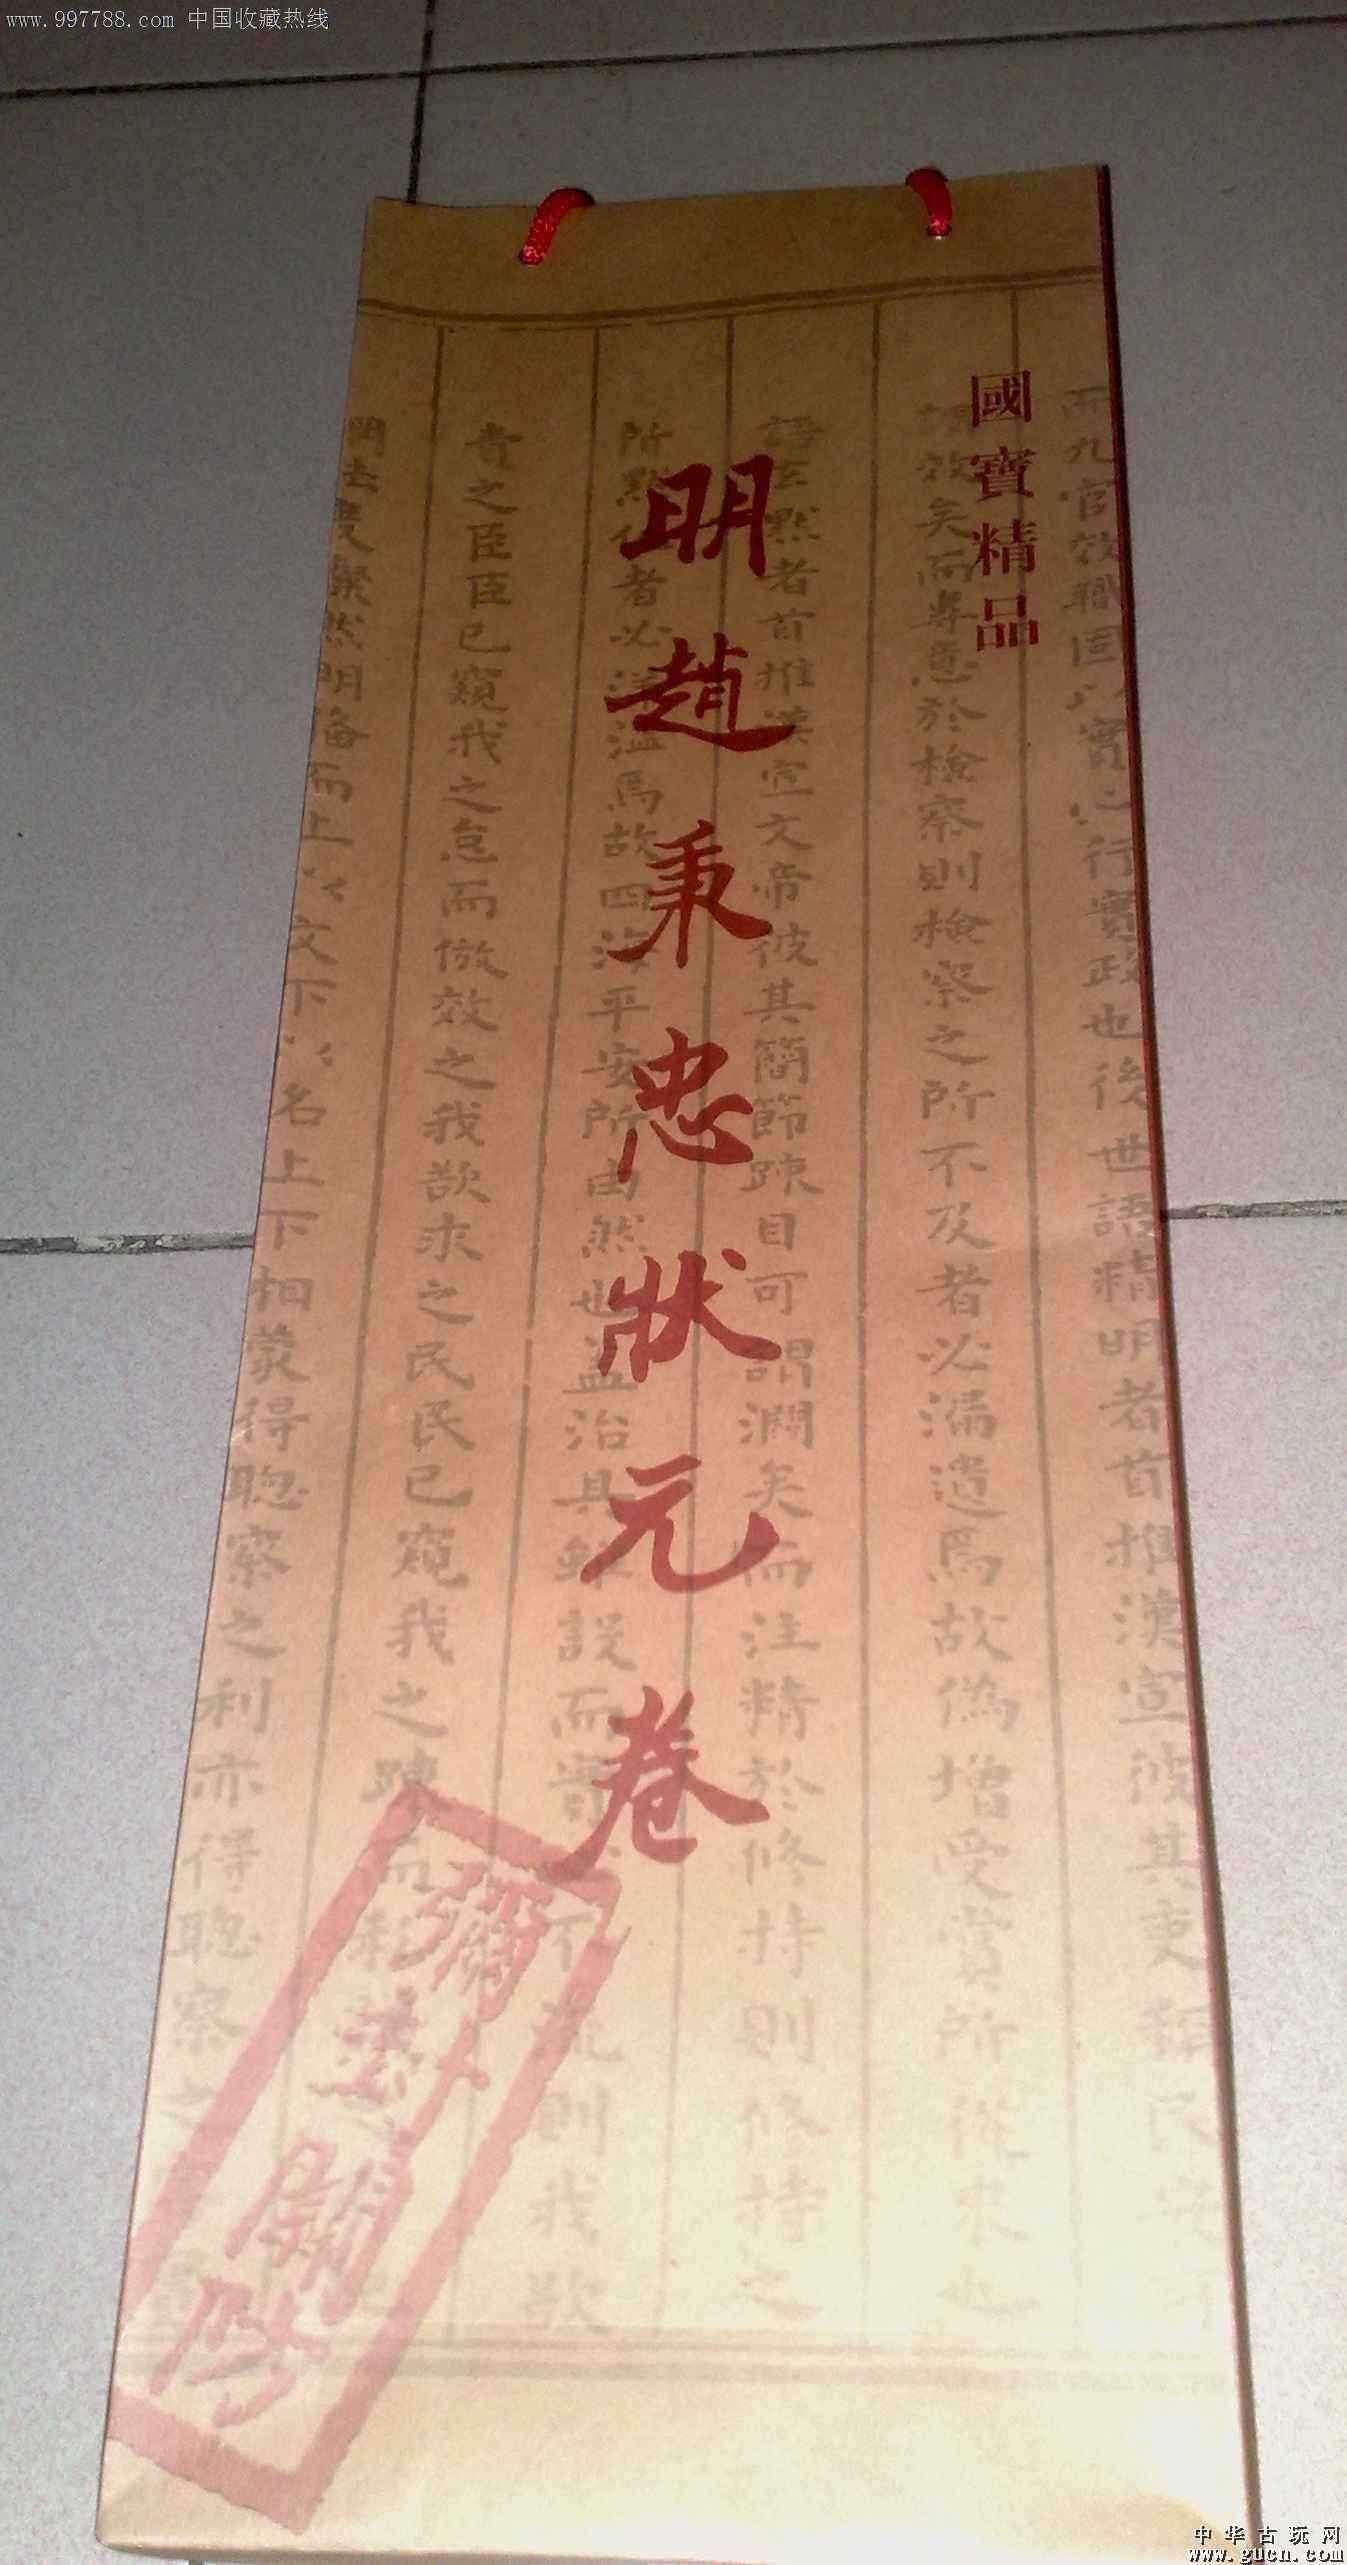 www.997788.com 中国收藏热线
國寶精品
明趙秉忠狀元卷
而九官效職固以實心行實政也後世語精明者首推漢宣彼其吏稱民安可
謂效矣而專意於檢察則檢察之所不及者必漏遺焉故偽增受賞所從來也
語玄默者首推漢宣文帝彼其簡節踈目可謂濶矣而注精於修持則修持之
所默化者必洋溢焉故四海平安所由然也盖治具雖設而實不流則我欲
責之臣臣已窺我之怠而倣效之我欲求之民民已窺我之踈而私
明法度粲然明備而上以文下以名上下相蒙得聰察之利亦得聰察之
彌封關防
中华古玩网
www.gucn.com